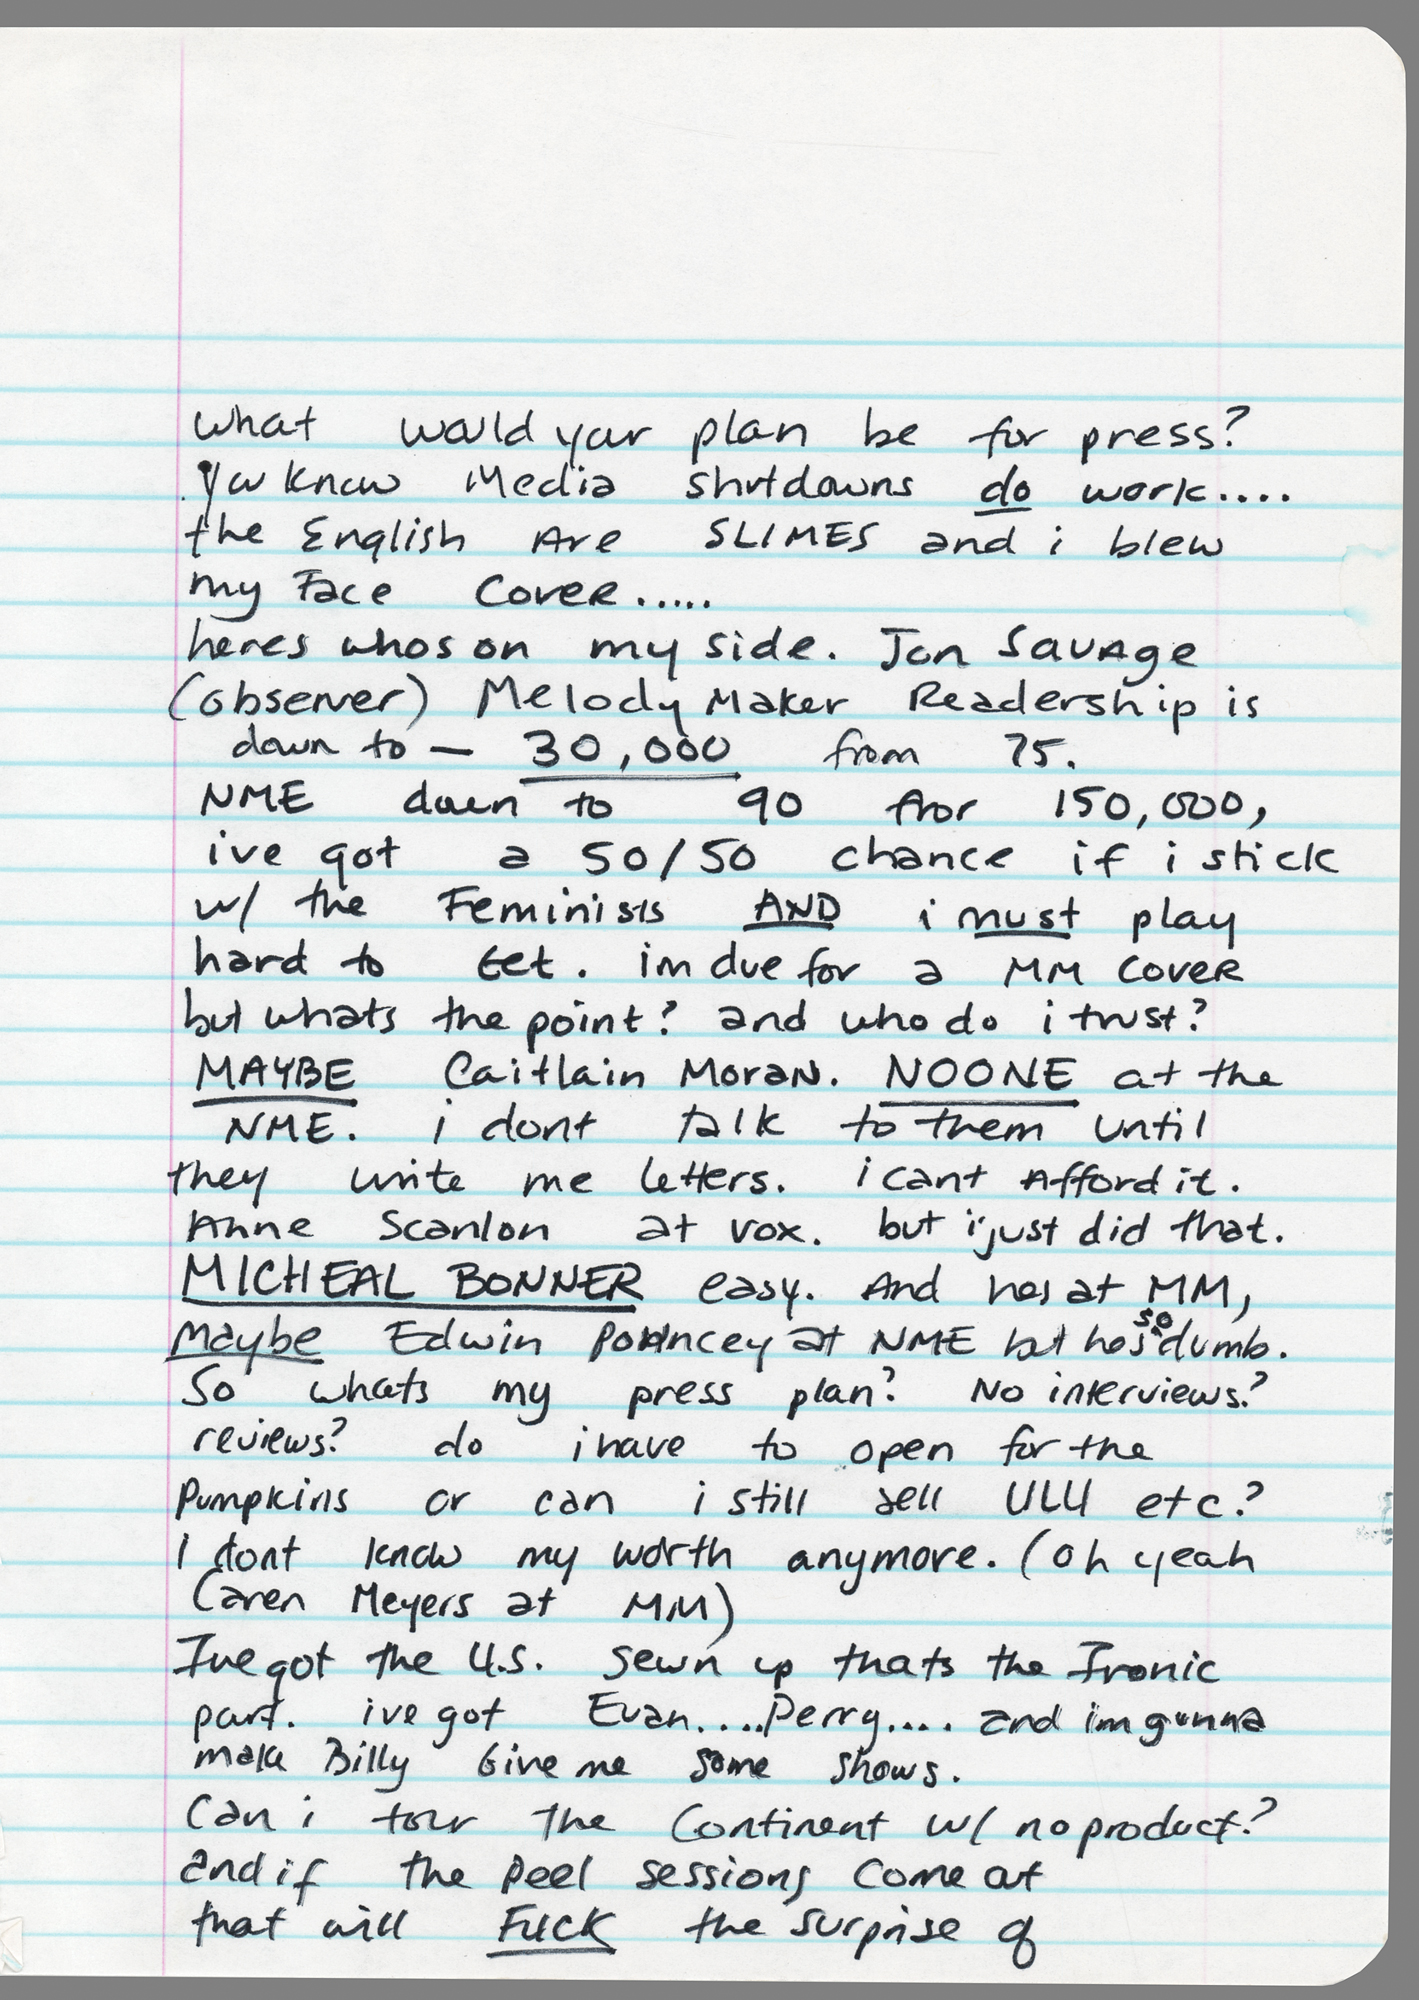 what would your plan be for press?
you know Media shutdowns do work....
the English Are SLIMES and i blew
my Face Cover.....
heres whos on my side. Jon Savage
(observer) Melody Maker Readership is
down to — 30,000 from 75.
NME down to 90 from 150,000,
ive got a 50/50 chance if i stick
w/ the Feminists AND i must play
hard to Get. im due for a MM Cover
but whats the point? and who do i trust?
MAYBE Caitlain Moran. NOONE at the
NME. i dont talk to them until
they write me letters. i cant Afford it.
Anne Scanlon at vox. but i just did that.
MICHEAL BONNER easy. And hes at MM,
Maybe Edwin Pouncey at NME but hes so dumb.
So whats my press plan? No interviews?
reviews? do i have to open for the
Pumpkins or can i still sell ULU etc?
I dont know my worth anymore. (oh yeah
Caren Meyers at MM)
Ive got the U.S. sewn up thats the Ironic
part. ive got Evan....Perry.... and im gunna
make Billy Give me some shows.
Can i tour the Continent w/ no product?
and if the peel sessions Come out
that will FUCK the surprise of